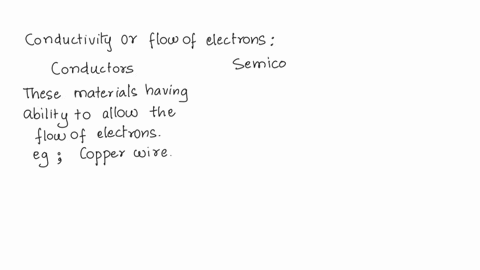 Conductivity or flow of electrons :
Conductors Semico
These materials having
ability to allow the
flow of electrons.
eg ; Copper wire.